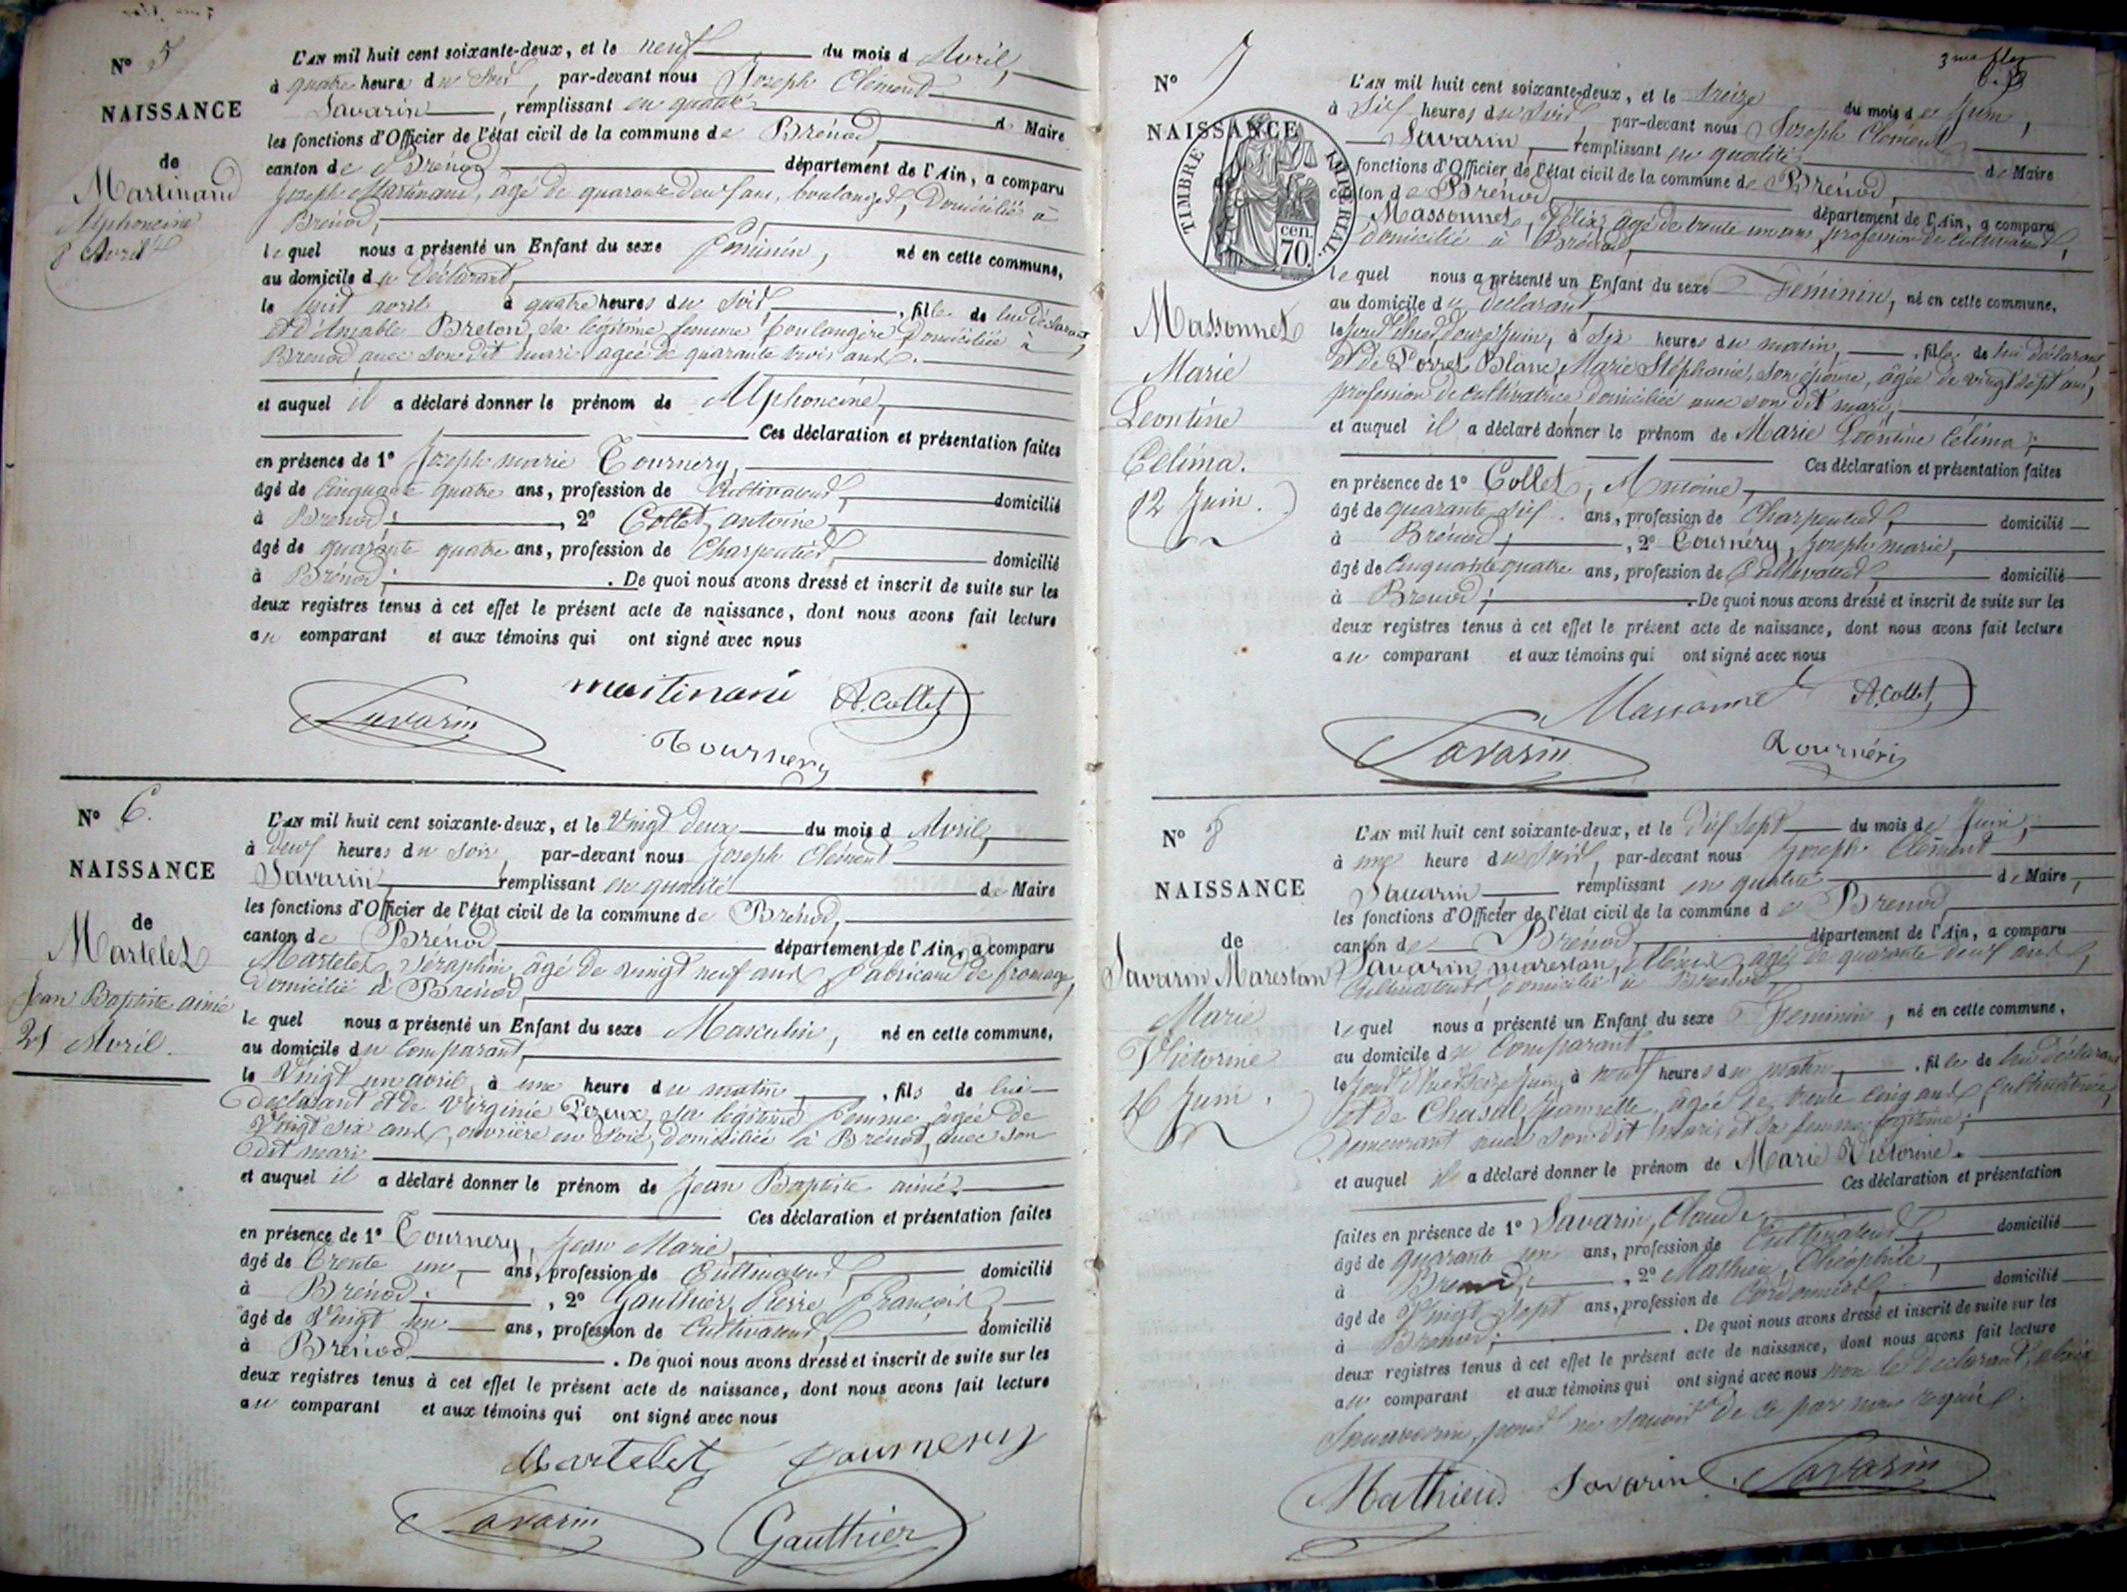 N° 5
NAISSANCE
de
Martinand
Alphoncine
8 Avril
L'AN mil huit cent soixante-deux, et le neuf du mois d Avril,
à quatre heure du Soir, par-devant nous Joseph Clément
Savarin, remplissant en qualité de Maire
les fonctions d'Officier de l'état civil de la commune de Brénod,
canton de Brénod département de l'Ain, a comparu
Joseph Martinand, âgé de quarante deux ans, boulanger, Domicilié à
Brénod,
lequel nous a présenté un Enfant du sexe féminin, né en cette commune,
au domicile du Déclarant,
le huit avril à quatre heures du Soir, fille de lui déclarant
et d'Aimable Breton, sa légitime femme boulangère, Domiciliée à
Brenod avec son dit mari agée de quarante trois ans.
et auquel il a déclaré donner le prénom de Alphoncine,
Ces déclaration et présentation faites
en présence de 1° Joseph marie Tournery,
âgé de Cinquante quatre ans, profession de Cultivateur, domicilié
à Brenod; , 2° Collet, antoine,
âgé de quarante quatre ans, profession de Charpentier, domicilié
à Brénod; . De quoi nous avons dressé et inscrit de suite sur les
deux registres tenus à cet effet le présent acte de naissance, dont nous avons fait lecture
au comparant et aux témoins qui ont signé avec nous
Savarin martinand A. Collet
Tournery
N° 6.
NAISSANCE
de
Martelet
Jean Baptiste aimé
21 Avril.
L'AN mil huit cent soixante-deux, et le Vingt deux du mois d Avril,
à deux heures du Soir, par-devant nous Joseph Clément
Savarin, remplissant en qualité de Maire
les fonctions d'Officier de l'état civil de la commune de Brénod,
canton de Brénod, département de l'Ain, a comparu
Martelet, Séraphin, âgé de vingt neuf ans fabricant de fromage,
Domicilié à Brénod,
lequel nous a présenté un Enfant du sexe Masculin, né en cette commune,
au domicile du Comparant,
le Vingt un avril, à une heure du matin, , fils de lui
Déclarant et de Virginie Pezeux, sa légitime femme âgée de
Vingt six ans, ouvrière en Soie, domiciliée à Brénod, avec son
dit mari
et auquel il a déclaré donner le prénom de Jean Baptiste aimé.
Ces déclaration et présentation faites
en présence de 1° Tournery, Jean Marie,
âgé de Trente un, ans, profession de Cultivateur, domicilié
à Brénod; , 2° Gauthier, Pierre François,
âgé de Vingt un ans, profession de Cultivateur, domicilié
à Brénod . De quoi nous avons dressé et inscrit de suite sur les
deux registres tenus à cet effet le présent acte de naissance, dont nous avons fait lecture
au comparant et aux témoins qui ont signé avec nous
Martelet Tournery
Savarin Gauthier
3me
N° 7
NAISSANCE
TIMBRE IMPÉRIAL.
70. cen.
Massonnet
Marie
Leontine
Célima.
12 Juin.
L'AN mil huit cent soixante-deux, et le treize du mois de Juin,
à Six heures du Soir, par-devant nous Joseph Clément
Savarin, remplissant en qualité de Maire
fonctions d'Officier de l'état civil de la commune de Brénod,
ton de Brénod, département de l'Ain, a comparu
Massonnet, Félix, âgé de trente un ans profession de cultivateur,
domicilié à Brénod,
lequel nous a présenté un Enfant du sexe Féminin, né en cette commune,
au domicile du Déclarant,
le jour d'hier, douze Juin, à six heures du matin, , fille de lui déclarant
et de Porret Blanc, Marie Stéphanie, son épouse, âgée de vingt sept ans,
profession de cultivatrice domiciliée avec son dit mari,
et auquel il a déclaré donner le prénom de Marie Léontine Célima;
Ces déclaration et présentation faites
en présence de 1° Collet, Antoine,
âgé de quarante six ans, profession de Charpentier, domicilié
à Brénod; , 2° Tournery, Joseph marie,
âgé de Cinquante quatre ans, profession de Cultivateur, domicilié
à Brenod; . De quoi nous avons dressé et inscrit de suite sur les
deux registres tenus à cet effet le présent acte de naissance, dont nous avons fait lecture
au comparant et aux témoins qui ont signé avec nous
Massonnet A. Collet
Savarin Tournéri
N° 8
NAISSANCE
de
Savarin Marestan
Marie
Victorine
16 Juin.
L'AN mil huit cent soixante-deux, et le Dix Sept du mois de Juin,
à une heure du Soir, par-devant nous Joseph Clément
Savarin remplissant en qualité de Maire,
les fonctions d'Officier de l'état civil de la commune de Brenod
canton de Brénod, département de l'Ain, a comparu
Savarin marestan, Alexis, âgé de quarante neuf ans,
Cultivateur, domicilié à Brénod
lequel nous a présenté un Enfant du sexe Féminin, né en cette commune,
au domicile du Comparant
le jour d'hier Seize Juin, à neuf heures du matin, , fille de lui déclarant
et de Chasal, Jeannette, âgée de trente cinq ans, cultivatrice,
Demeurant avec son dit mari, et sa femme légitime;
et auquel il a déclaré donner le prénom de Marie Victorine.
Ces déclaration et présentation
faites en présence de 1° Savarin, Claude,
âgé de quarante un ans, profession de Cultivateur, domicilié
à Brenod, , 2° Mathieu, Théophile,
âgé de Vingt Sept ans, profession de Cordonnier, domicilié
à Brenod; . De quoi nous avons dressé et inscrit de suite sur les
deux registres tenus à cet effet le présent acte de naissance, dont nous avons fait lecture
au comparant et aux témoins qui ont signé avec nous non le Déclarant, alexis
pour ne Savoir de ce par nous requis.
Mathieu Savarin Savarin